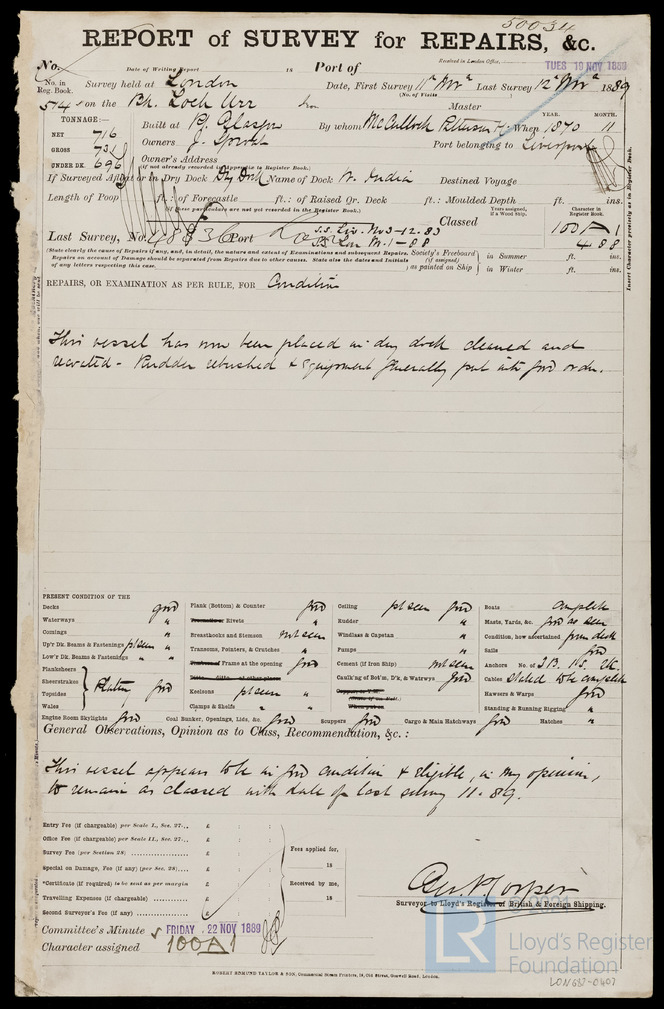 50034
REPORT of SURVEY for REPAIRS, &c.
No. Date of Writing Report 18 Port of Received in London Office, TUES 19 NOV 1889
No. in Reg. Book. Survey held at London Date, First Survey 11th Novr Last Survey 12th Novr 1889
(No. of Visits ) 
514 on the Bk. Loch Urr Iron Master
TONNAGE:— YEAR. MONTH.
NET 716 Built at Pt Glasgow By whom McCulloch Patterson When 1870 11
GROSS 731 Owners J. Sproat Port belonging to Liverpool
UNDER DK. 696 Owners' Address
(if not already recorded in Appendix to Register Book.)
If Surveyed Afloat or in Dry Dock Dry Dock Name of Dock W. India Destined Voyage
Length of Poop ft.: of Forecastle ft.: of Raised Qr. Deck ft.: Moulded Depth ft. ins.
(if these particulars are not yet recorded in the Register Book.) Years assigned, if a Wood Ship. Character in Register Book.
Classed 100A1
Last Survey, No. 40836 Port S.S. Liv. No3-12-83
S.S. Lon No.1-88 4 88
(State clearly the cause of Repairs if any, and, in detail, the nature and extent of Examinations and subsequent Repairs. Repairs on account of Damage should be separated from Repairs due to other causes. State also the dates and Initials of any letters respecting this case.
Society's Freeboard (if assigned) as painted on Ship in Summer ft. ins.
in Winter ft. ins.
Insert Character precisely as in Register Book.
REPAIRS, OR EXAMINATION AS PER RULE, FOR Condition
This vessel has now been placed in dry dock cleaned and
recoated - Rudder rebushed & Equipment generally put into good order.
PRESENT CONDITION OF THE
Decks good Plank (Bottom) & Counter good Ceiling pt seen good Boats Complete
Waterways " Rivets " Rudder " Masts, Yards, &c. good as seen
Comings " Breasthooks and Stemson not seen Windlass & Capstan " Condition, how ascertained from deck
Up'r Dk. Beams & Fastenings pt seen " Transoms, Pointers, & Crutches " Pumps " Sails good
Low'r Dk. Beams & Fastenings " " Frames at the opening good Cement (if Iron Ship) not seen Anchors No. of 3B. 1S. 2K.
Planksheers Caulk'ng of Bot'm, D'k, & Watrwys good Cables stated to be complete
Sheerstrakes Plating good Keelsons pt seen " Hawsers & Warps good
Topsides Clamps & Shelfs " " Standing & Running Rigging "
Wales
Engine Room Skylights good Coal Bunker, Openings, Lids, &c. good Scuppers good Cargo & Main Hatchways good Hatches "
General Observations, Opinion as to Class, Recommendation, &c.:
This vessel appears to be in good condition & Eligible, in my opinion,
to remain as classed with date of last survey 11.89.
Entry Fee (if chargeable) per Scale I., Sec. 27... £ : :
Office Fee (if chargeable) per Scale II., Sec. 27... £ : :
Survey Fee (per Section 28) £ : : Fees applied for,
Special on Damage, Fee (if any) (per Sec. 28) £ : : 18
*Certificate (if required) to be sent as per margin £ : : Received by me,
Travelling Expenses (if chargeable) £ : : 18
Second Surveyor's Fee (if any) £ : :
Surveyor to Lloyd's Register of British & Foreign Shipping.
Committee's Minute FRIDAY 22 NOV 1889
Character assigned 100A1
© 2021
LR Lloyd's Register
Foundation
ROBERT EDMUND TAYLOR & SON, Commercial Steam Printers, 19, Old Street, Goswell Road, London.
LON657-0407